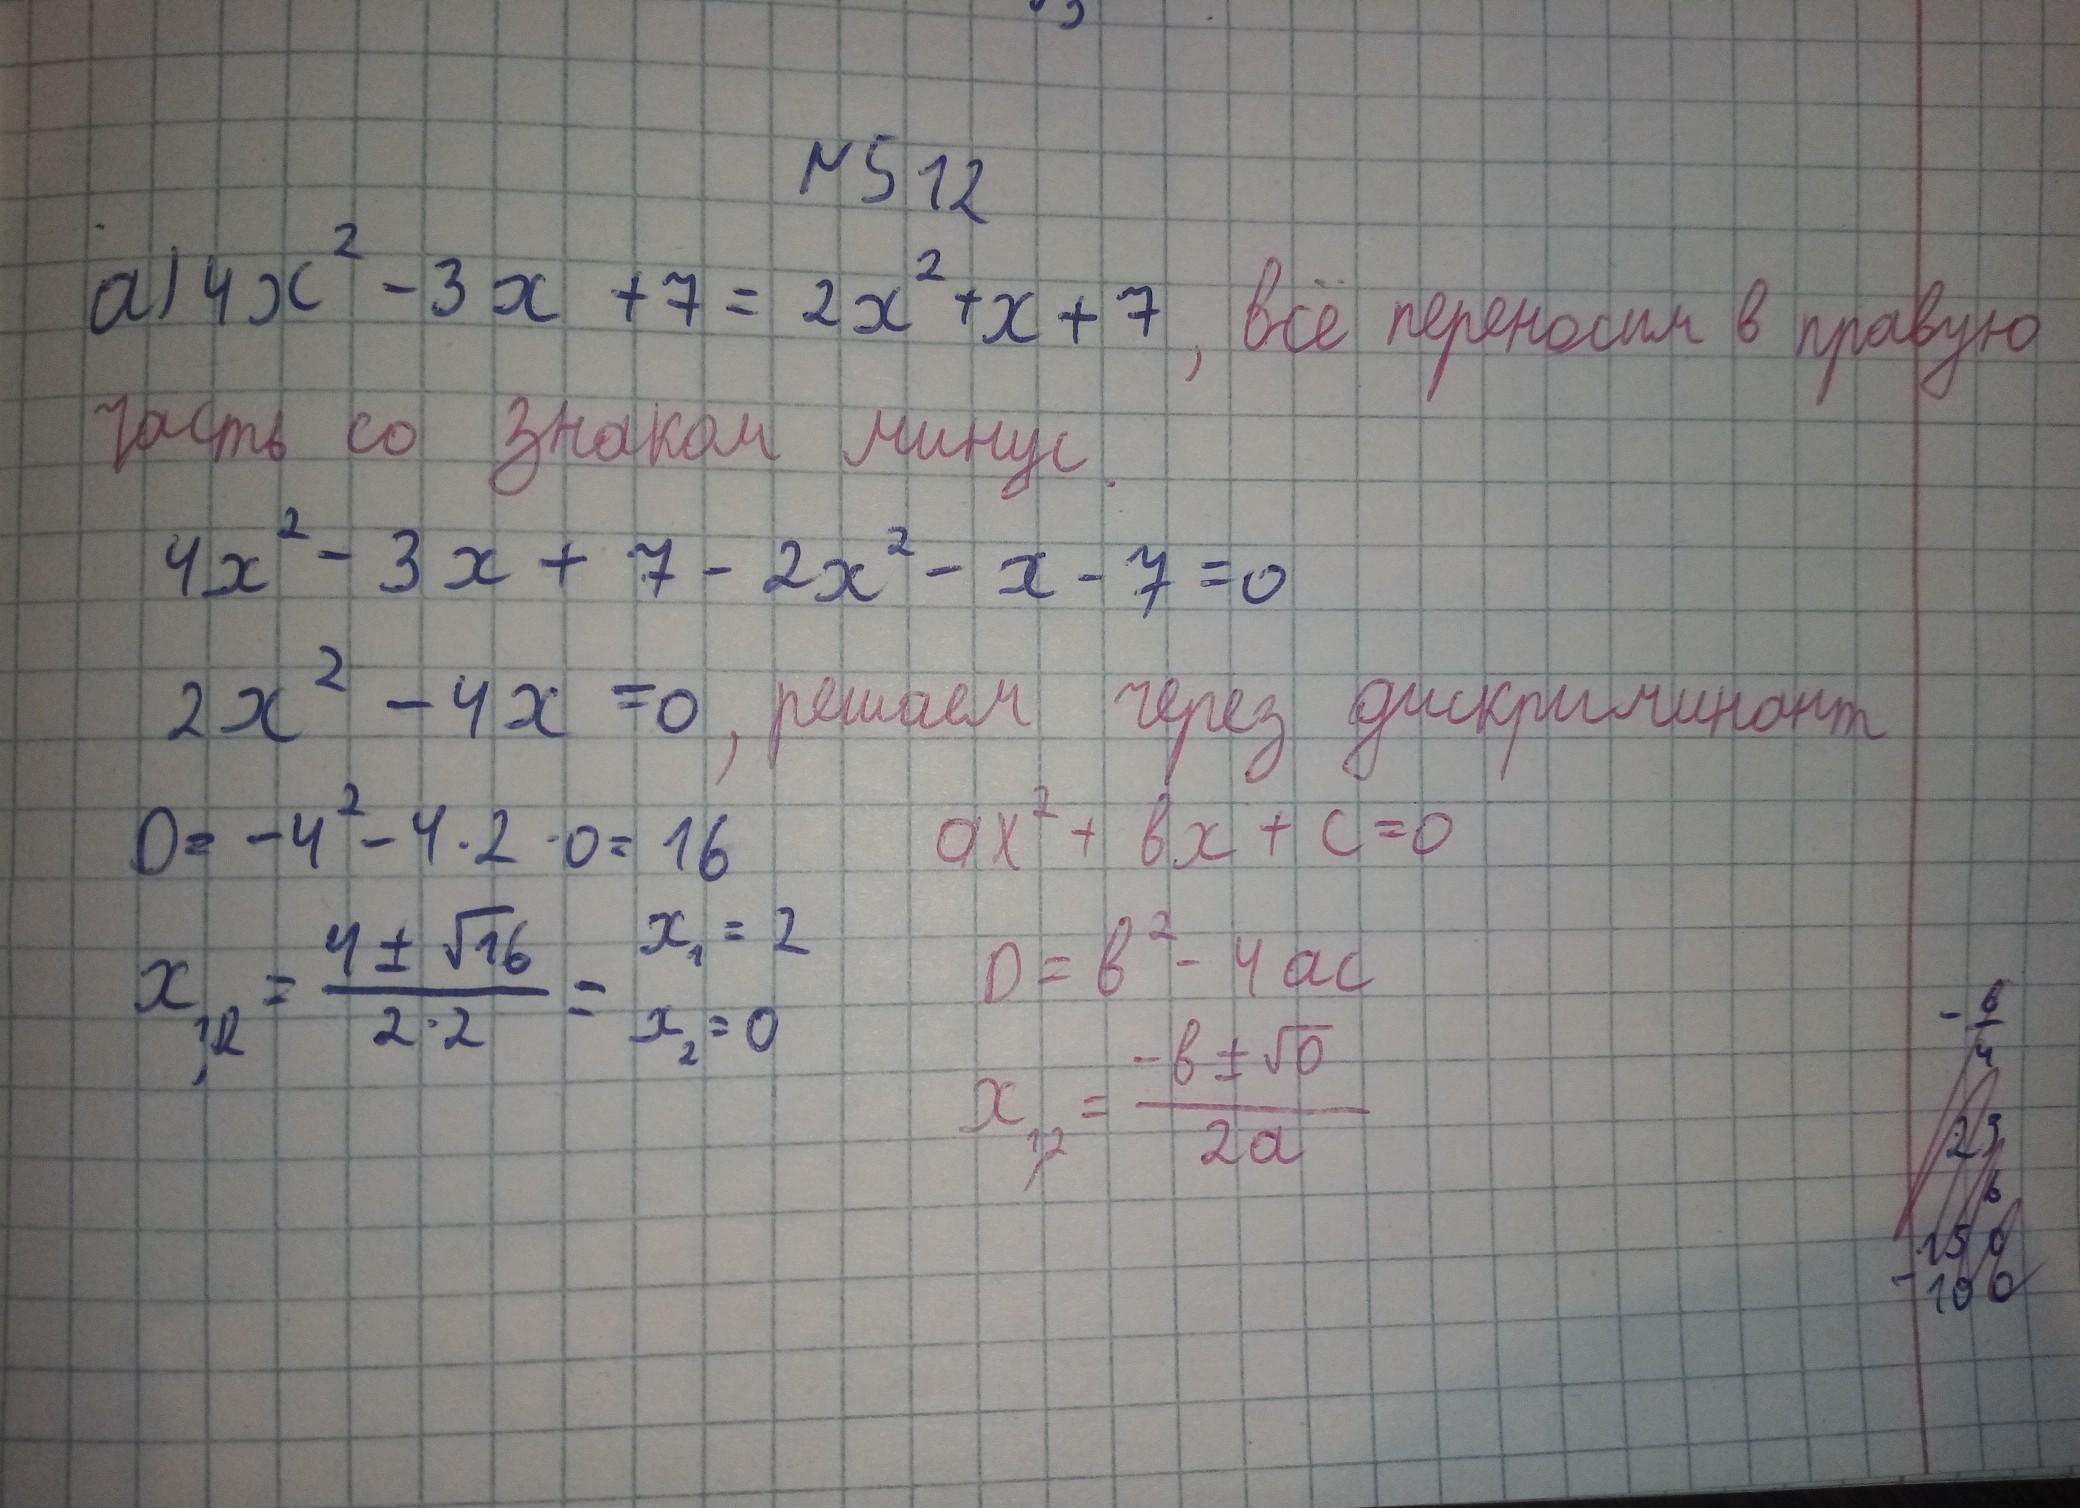 №512
а) 4x² - 3x + 7 = 2x² + x + 7, всё переносим в правую
часть со знаком минус.
4x² - 3x + 7 - 2x² - x - 7 = 0
2x² - 4x = 0, решаем через дискриминант
D = -4² - 4·2·0 = 16
ax² + bx + c = 0
x₁,₂ = (4 ± √16)/(2·2) = x₁ = 2
x₂ = 0
D = b² - 4ac
x₁,₂ = (-b ± √D)/(2a)